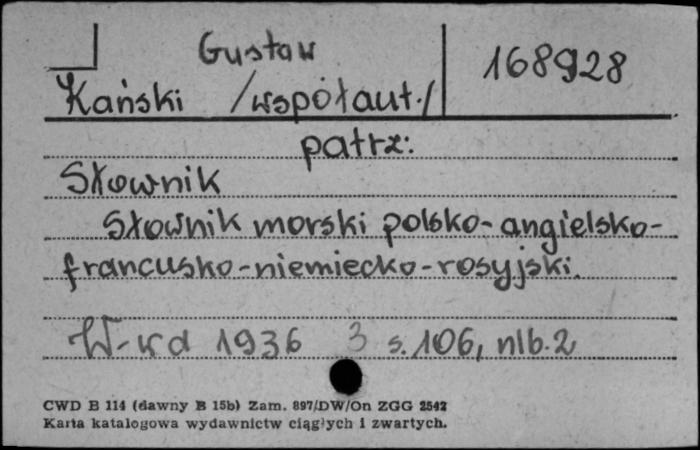 Gustaw
168928
Kański /współaut./
patrz:
Słownik
Słownik morski polsko-angielsko-
francusko-niemiecko-rosyjski.
W-wa 1936 3 s. 106, nlb. 2
CWD B 114 (dawny B 15b) Zam. 897/DW/On ZGG 2542
Karta katalogowa wydawnictw ciągłych i zwartych.